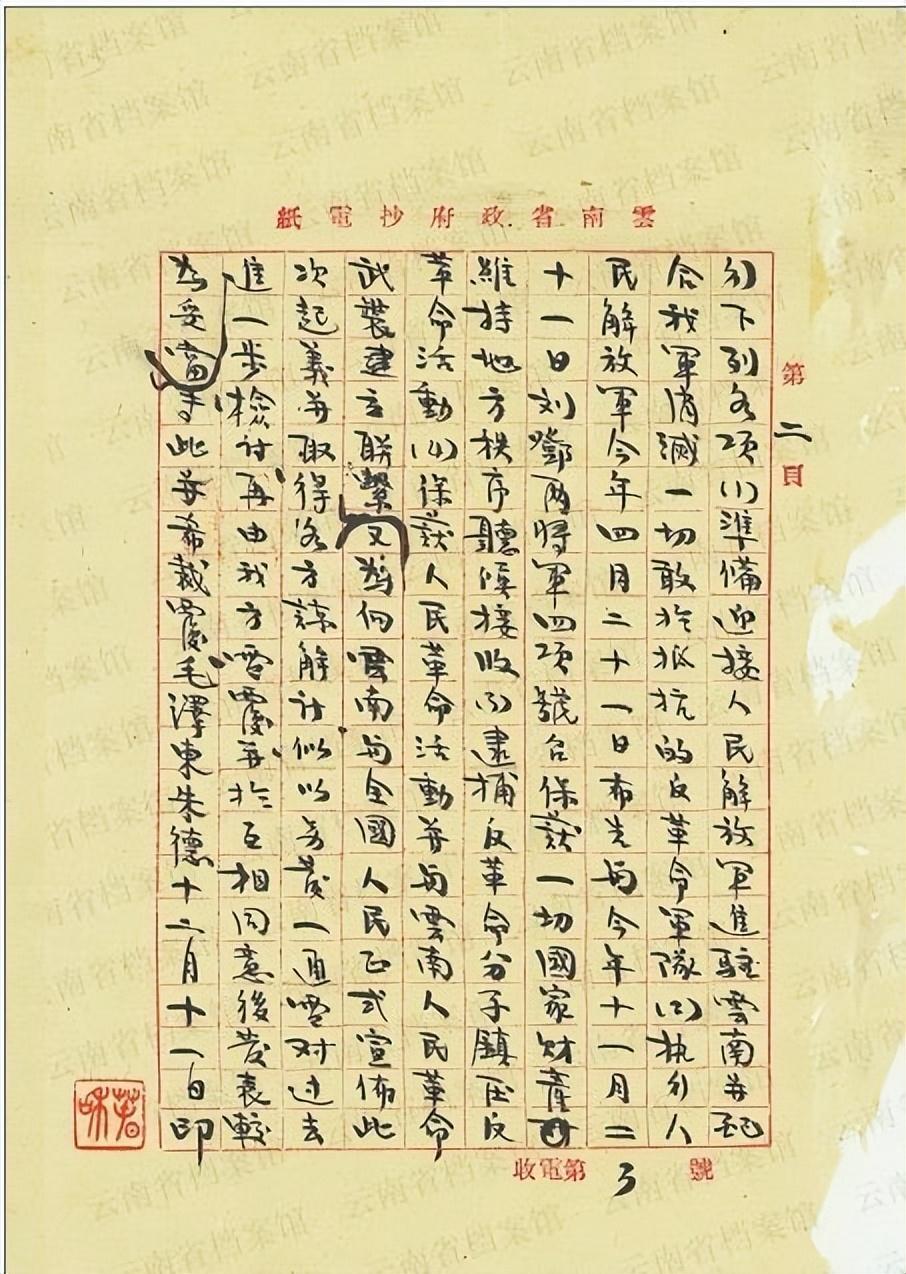 雲南省政府抄電紙
第二頁
行下列各項(1)準備迎接人民解放軍進駐雲南并配
合我軍消滅一切敢於抵抗的反革命軍隊(2)执行人
民解放軍今年四月二十一日布告与今年十一月二
十一日刘鄧两將軍四項號召保護一切國家財產
維持地方秩序聽候接收(3)逮捕反革命分子鎮压反
革命活動(4)保護人民革命活動并与雲南人民革命
武裝建立联繫又為向雲南与全國人民正式宣佈此
次起義并取得各方諒解計似以另發一通電对过去
進一步檢討再由我方電覆并於互相同意後發表較
為妥當專此并希裁覆毛澤東朱德十二月十一日印
收電第3號
云南省档案馆